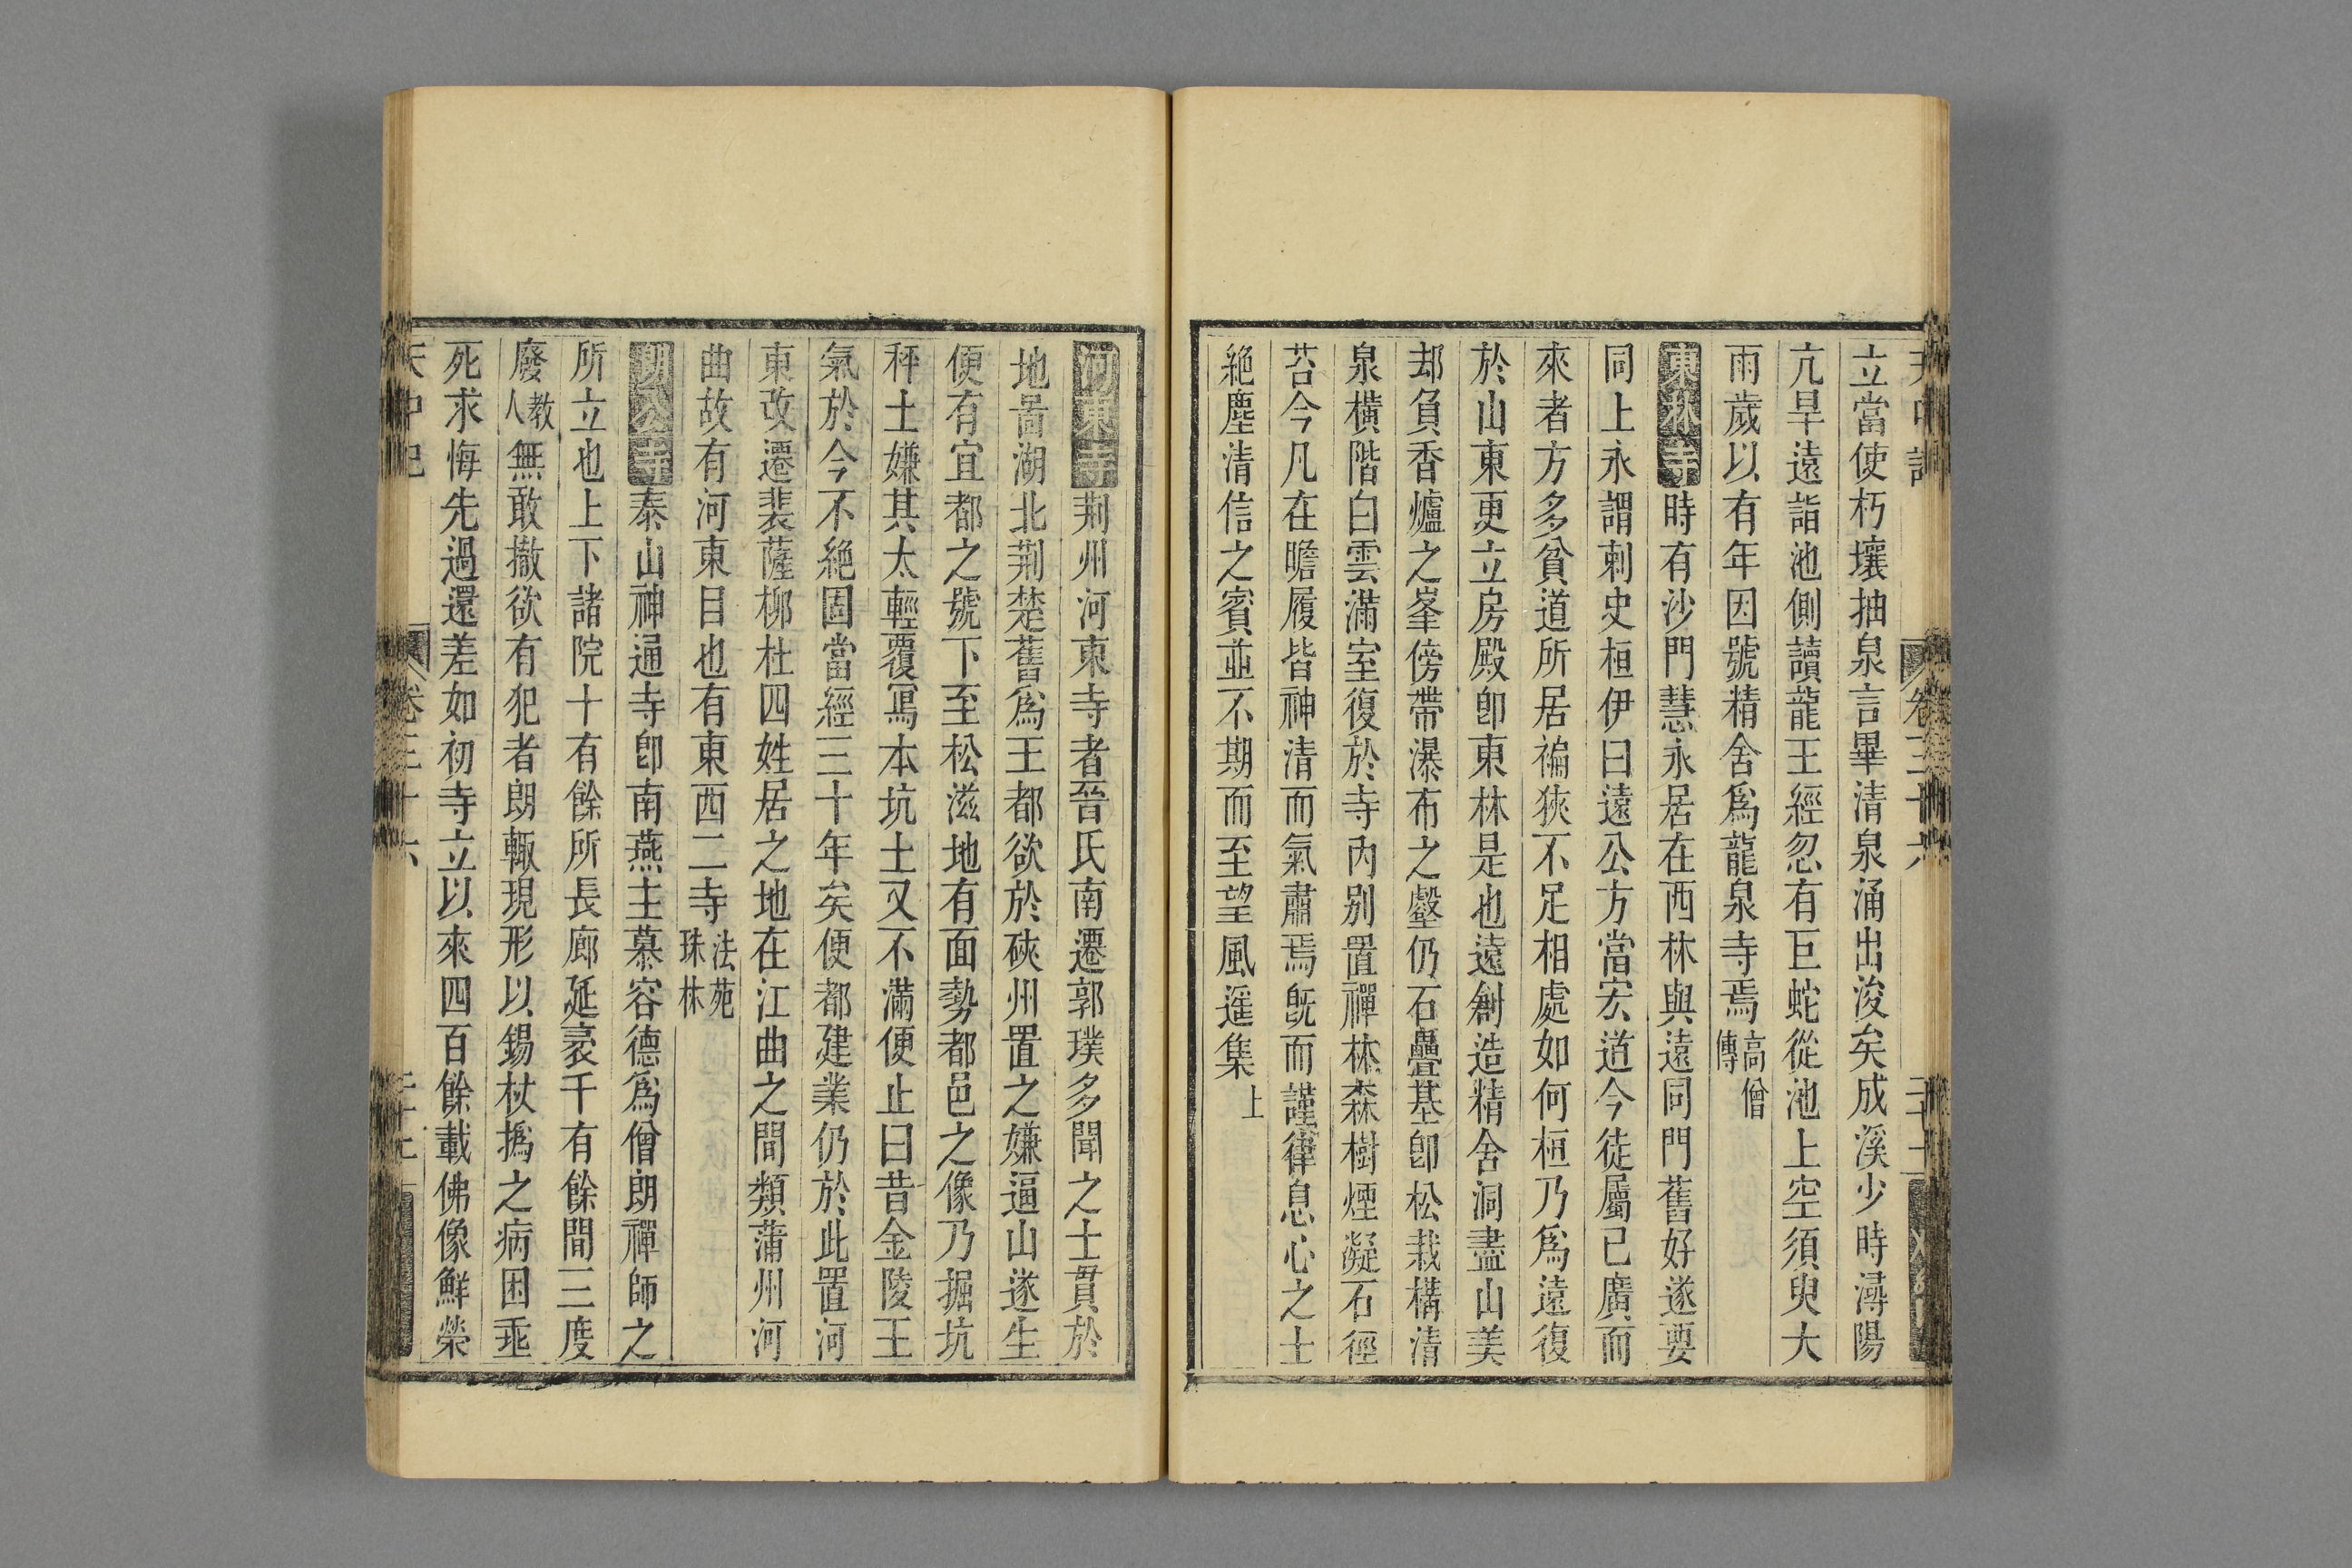 立當使朽壤抽泉言畢清泉涌出浚矣成溪少時潯陽
亢旱遠詣池側讀龍王經忽有巨蛇從池上空須臾大
雨歲以有年因號精舍爲龍泉寺焉高僧傳
東林寺時有沙門慧永居在西林與遠同門舊好遂要
同上永謂刺史桓伊曰遠公方當宏道今徒屬已廣而
來者方多貧道所居褊狹不足相處如何桓乃爲遠復
於山東更立房殿卽東林是也遠創造精舍洞盡山美
却負香爐之峯傍帶瀑布之壑仍石疊基卽松栽構清
泉橫階白雲滿室復於寺內别置禪林森樹煙凝石徑
苔今凡在瞻履皆神清而氣肅焉旣而謹律息心之士
絕塵清信之賓並不期而至望風遥集上
河東寺荆州河東寺者晉氏南遷郭璞多聞之士貫於
地啚湖北荆楚舊爲王都欲於硤州置之嫌逼山遂生
便有宜都之號下至松滋地有面勢都邑之像乃掘坑
秤土嫌其太輕覆冩本坑土又不滿便止曰昔金陵王
氣於今不絕固當經三十年矣便都建業仍於此置河
東改遷裴薩柳杜四姓居之地在江曲之間類蒲州河
曲故有河東目也有東西二寺法苑珠林
朗公寺泰山神通寺卽南燕主慕容德爲僧朗禪師之
所立也上下諸院十有餘所長廊延袤千有餘間三度
廢教人無敢撤欲有犯者朗輙現形以錫杖撝之病困垂
死求悔先過還差如初寺立以來四百餘載佛像鮮榮
天中記 卷三十六